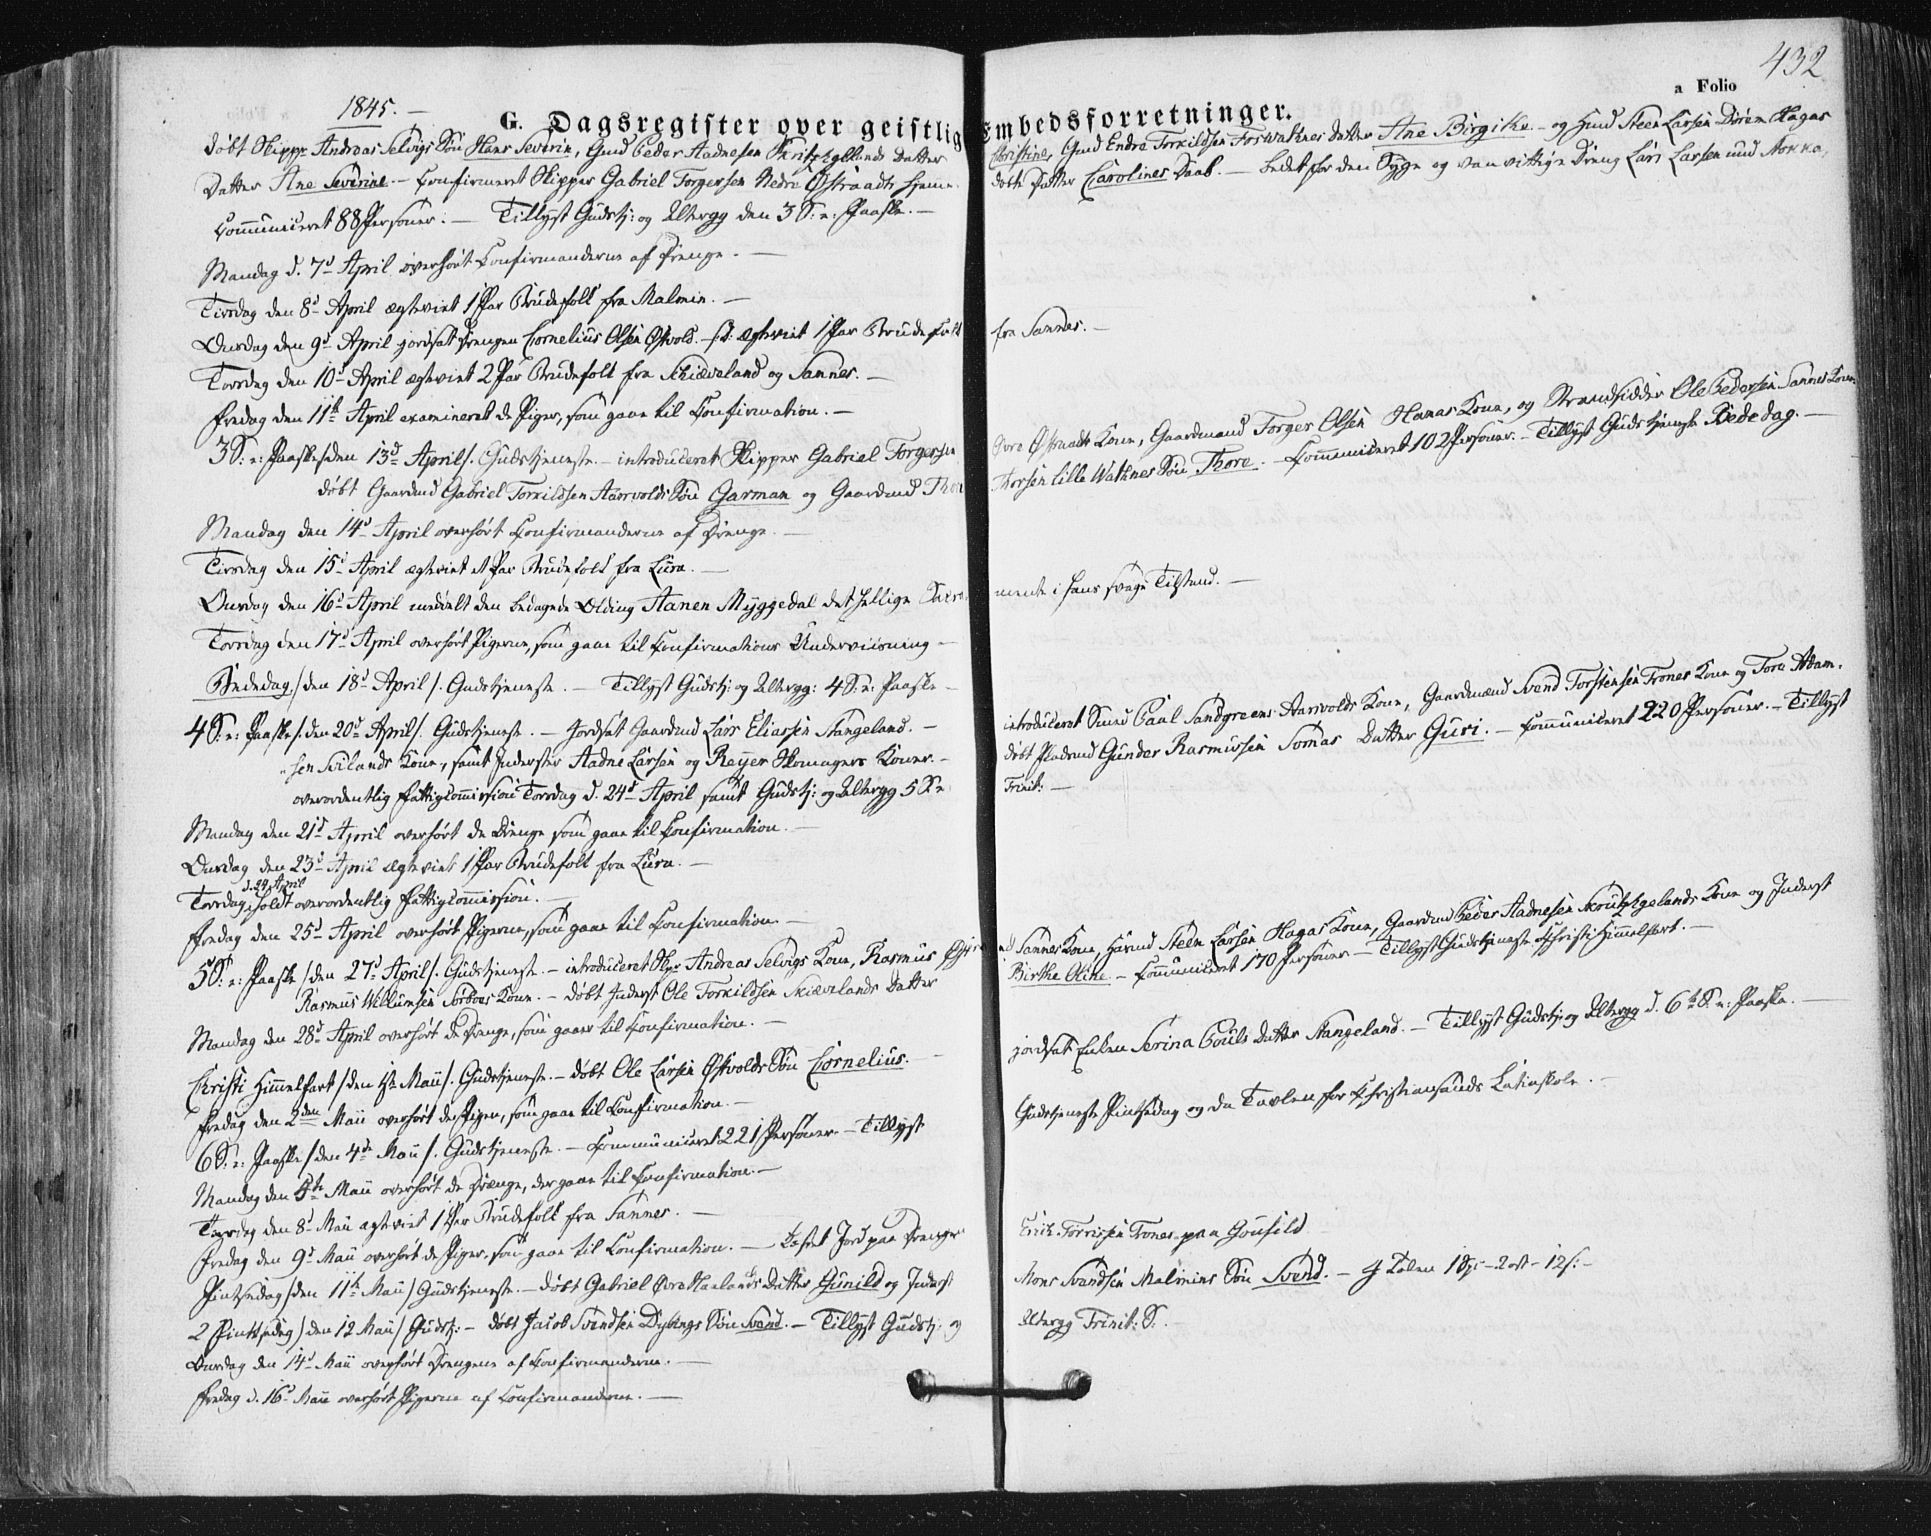 432
a Folio
1845. —
G. Dagsregister over geistlig Embedsforretninger.
døbt Skippr Andreas Selvigs Søn Hans Severin, Gmd Peder Aadnesen Datter
Christine, Gmd Endre Torkildsen Forswatnes Datter Ane Birgithe. — og Hmd Steen Larsen Hagas
Datter Ane Severine. — Confirmeret Skipper Gabriel Torgersen Nedre Østraadts hjemme
døbte Datter Carolines Daab. — bedet for den Syge og vanvittige Dreng Lars Larsen
Communiceret 88 Personer. — Tillyst Gudstj: og Altergg den 3 S. e: Paaske. —
Mandag d. 7d April overhørt Confirmanderne af Drenge. —
Tirsdag den 8d April ægteviet 1 Par Brudefolk fra Malmin. —
Onsdag den 9d April jordsat Drengen Cornelius Olsen Østvold. — ægteviet 1 Par Brudefolk
fra Sannes. —
Torsdag den 10d April ægteviet 2 Par Brudefolk fra Schiæveland og Sannes. —
Fredag den 11te April examineret de Piger, som gaae til Confirmation. —
3 S. e: Paaske /den 13d April/. Gudstjeneste. — introduceret Skipper Gabriel Torgersen
Østraadts Kone, Gaardmand Torger Olsen Hanas Kone, og Strandsidder Ole Pedersen Sannes Kone
døbt Gaardmd Gabriel Torkildsen Aarvolds Søn Garman og Gaardmd Thore
Thorsen Lille Wathnes Søn Thore. — Communiceret 102 Personer. — Tillyst Gudstjeneste Bededag. —
Mandag den 14d April overhørt Confirmanderne af Drenge. —
Tirsdag den 15d April ægteviet et Par Brudefolk fra Lura. —
Onsdag den 16d April meddelt den bedagede Olding Aanen Myggedal det hellige Sacra-
mente i hans svage Tilstand. —
Torsdag den 17d April overhørt Pigerne, som gaae til Confirmations Underviisning —
Bededag, /den 18d April/. Gudstjeneste. — Tillyst Gudstj: og Altergg: 4 S. e: Paaske —
4 S. e: Paaske /den 20d April/. Gudstjeneste. — Jordsat Gaardmd Lars Eliasen Stangeland. —
introduceret Smed Paul Sandgreens Aarvolds Kone, Gaardmænd Svend Torstensen Trones Kone og Tore Adam-
sen Svilands Kone, samt Inderster Aadne Larsen og Reyer Homagers Koner. —
døbt Pladsmd Gunder Rasmusen Somas Datter Guri. — Communiceret 220 Personer. — Tillyst
overordentlig Fattigcommission Torsdag d. 24d April samt Gudstj: og Altergg 5 S. e
Trinit: —
Mandag den 21d April overhørt de Drenge som gaae til Confirmation. —
Onsdag den 23d April ægteviet 1 Par Brudefolk fra Lura. —
d. 24 April
Torsdag holdt overordentlig Fattigcommission. —
Fredag den 25d April overhørt Pigerne, som gaae til Confirmation. —
5 S. e: Paaske /den 27d April/. Gudstjeneste. — introduceret Skpr Andreas Selvigs Kone, Rasmus
Sannes Kone, Huusmd Steen Larsen Hagas Kone, Gaardmd Peder Aadnesen Skrutzgelands Kone og Inderst
Rasmus Willumsen Sørboes Kone. — døbt Inderst Ole Torkildsen Skiævelands Datter
Birthe Oline. — Communiceret 170 Personer — Tillyst Gudstjeneste Christi Himmelfart. —
Mandag den 28d April overhørt de Drenge, som gaaer til Confirmation. —
Christi Himmelfart /den 1te Maii/. Gudstjeneste. — døbt Ole Larsen Østvolds Søn Cornelius. —
jordsat Enken Serina Pouls Datter Stangeland. — Tillyst Gudstj: og Altergg d. 6te S. e: Paaske. —
Fredag den 2den Maii overhørt de Piger, som gaae til Confirmation. —
6 S. e: Paaske /den 4de Maii/. Gudstjeneste. — Communiceret 221 Personer. — Tillyst
Gudstjeneste Pintsedag og da Tavlen for Christiansands Latinskole. —
Mandag den 5te Maii overhørt de Drenge, der gaae til Confirmation. —
Torsdag den 8d Maii ægteviet 1 Par Brudefolk fra Sannes. —
Fredag den 9d Maii overhørt de Piger, som gaae til Confirmation. — kastet Jord paa Drengen
Erich Torrissen Trones paa Gousild
Pintsedag /den 11te Maii/ Gudstjeneste. — døbt Gabriel Øvre Haalands Datter Gunild og Inderst
Mons Svendsen Malmins Søn Svend. — I Tavlen 1 Sp — 2 ort — 12 s: —
2 Pintsedag /den 12 Maii/ Gudstj: — døbt Jacob Svendsen Dybings Søn Svend. — Tillyst Gudstj: og
Altergg Trinit: S: —
Onsdag den 14d Maii overhørt Drengene af Confirmanderne. —
Fredag d. 16d Maii overhørt Pigerne af Confirmanderne. —